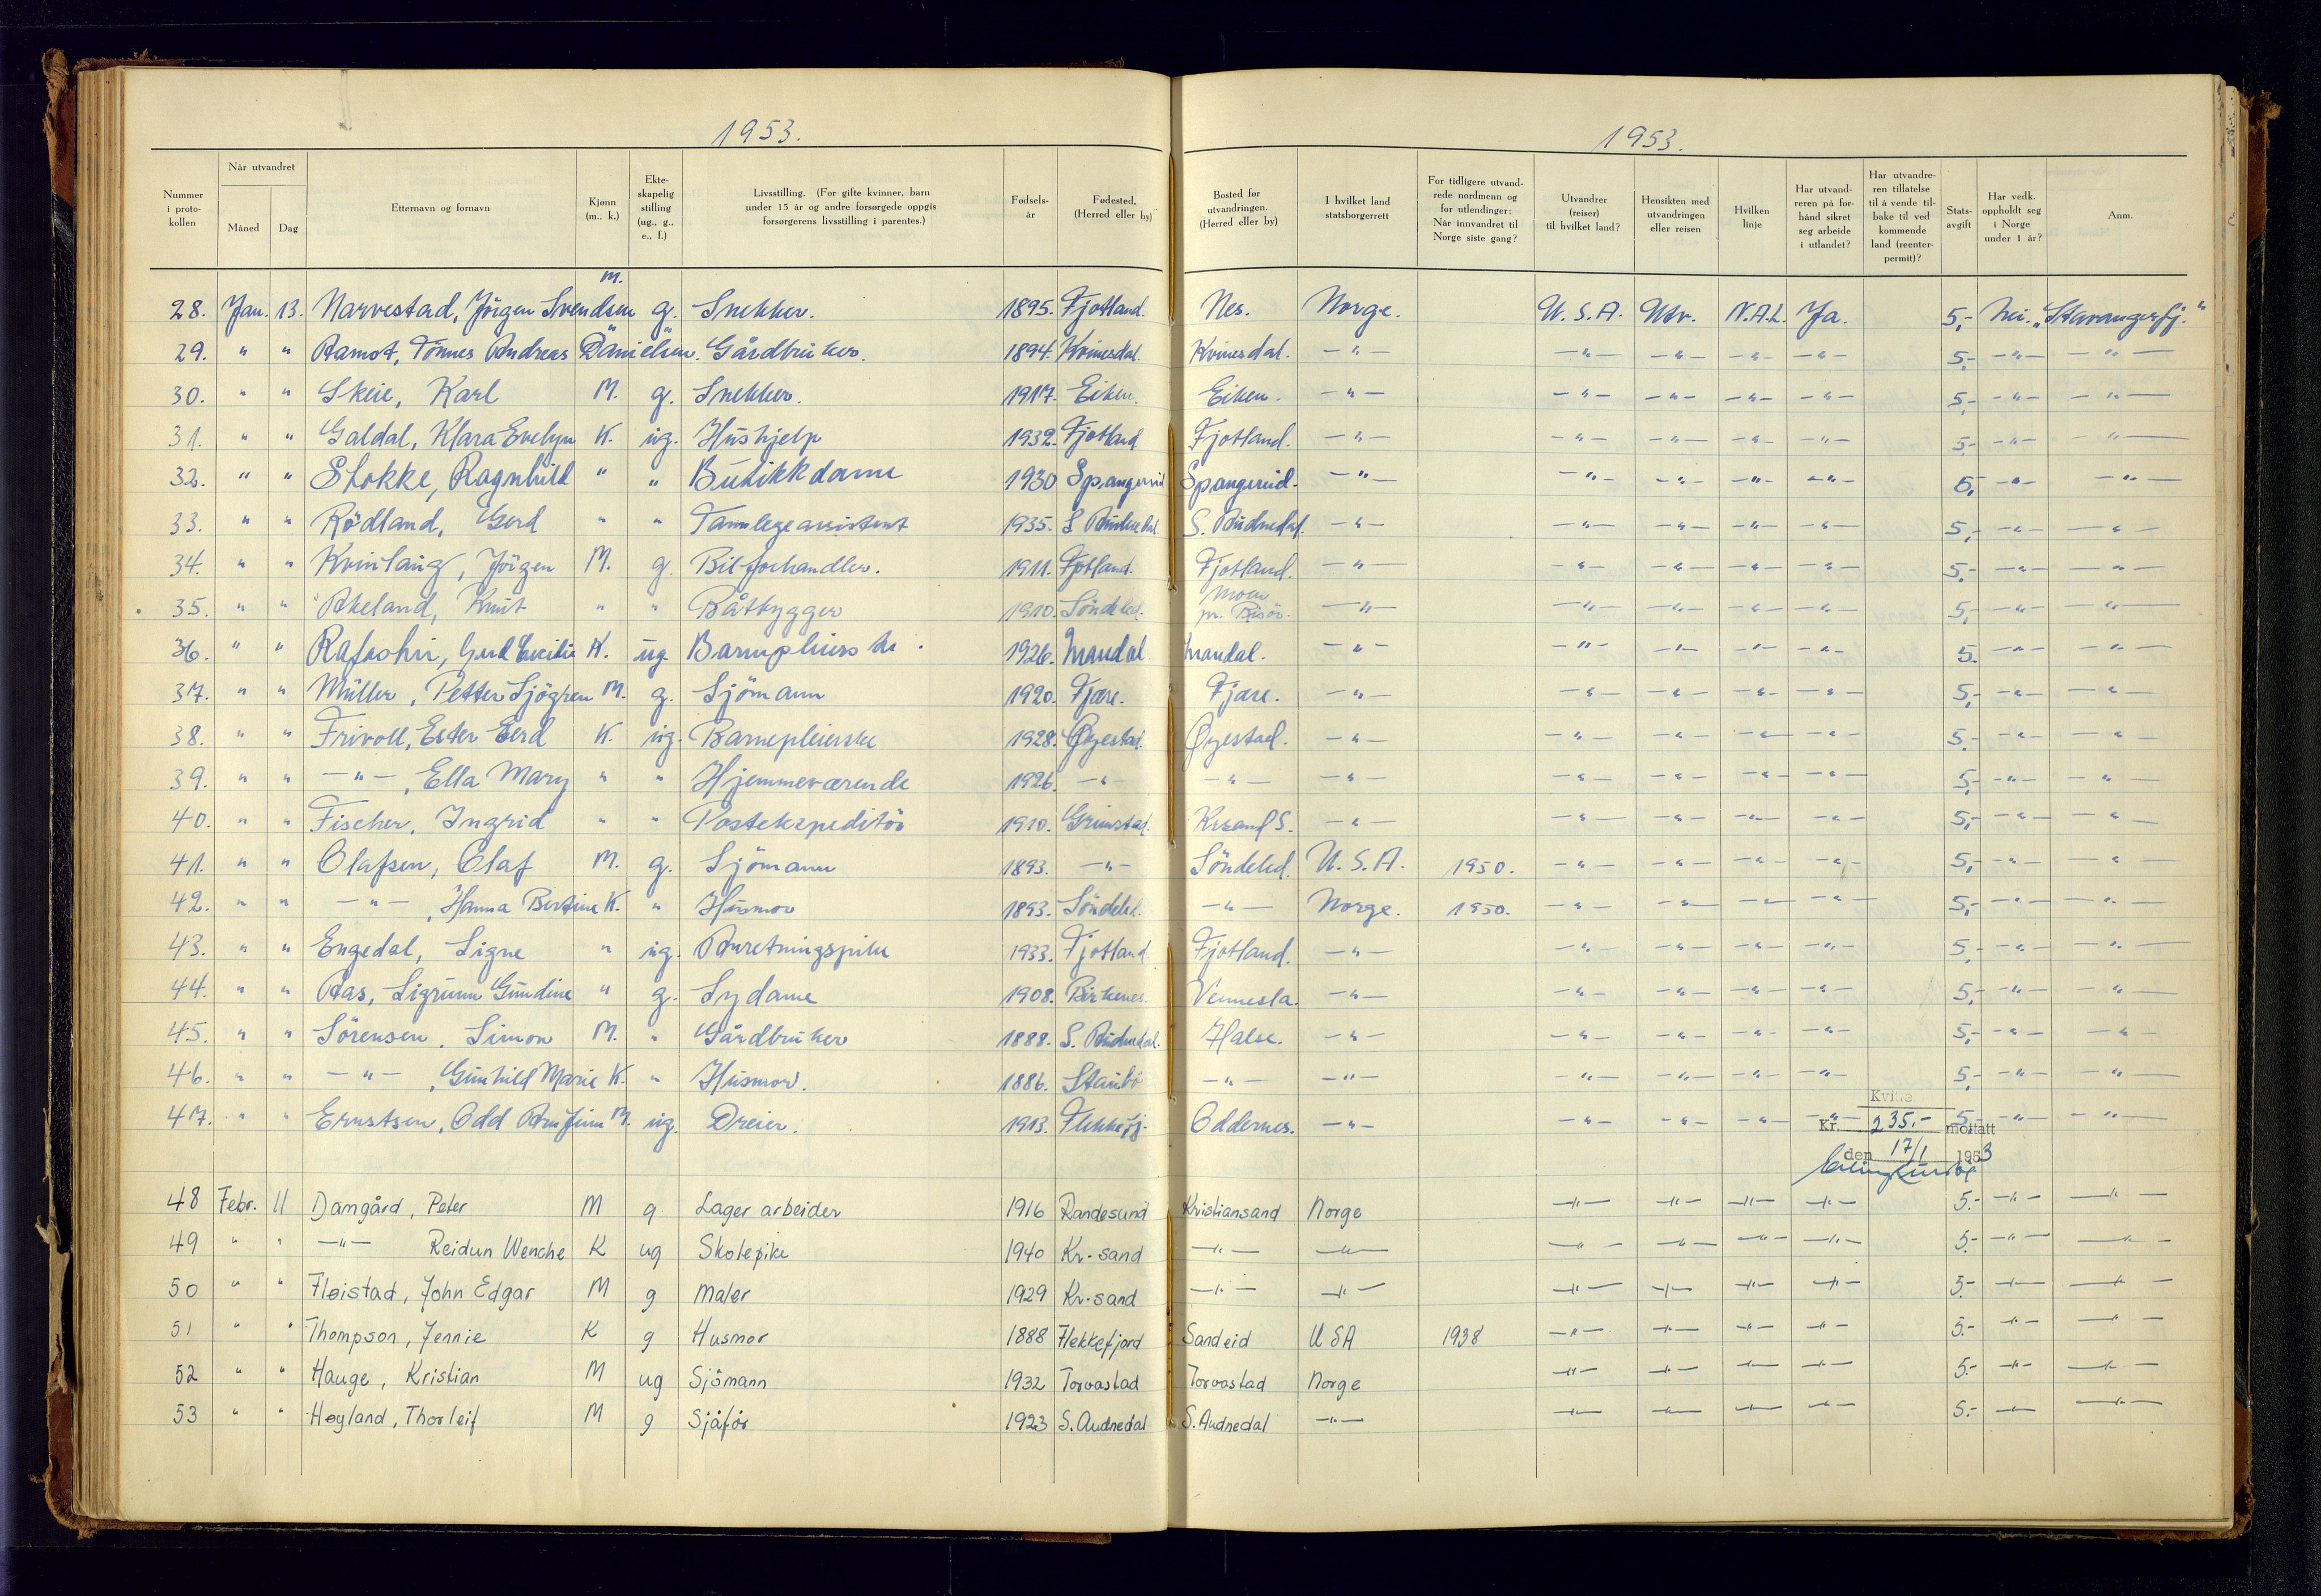 1953.
1953.
Nummer i proto-kollen | Når utvandret | Måned | Dag | Etternavn og fornavn | Kjønn (m.. k.) | Ekte-skapelig stilling (ug., g.. e.. f.) | Livsstilling. (For gifte kvinner, barn under 15 år og andre forsørgede oppgis forsørgerens livsstilling i parentes.) | Fødsels-år | Fødested, (Herred eller by) | Bosted før utvandringen. (Herred eller by) | I hvilket land statsborgerrett | For tidligere utvand-rede nordmenn og for utlendinger: Når innvandret til Norge siste gang? | Utvandrer (reiser) til hvilket land? | Hensikten med utvandringen eller reisen | Hvilken linje | Har utvand-reren på for-hånd sikret seg arbeide i utlandet? | Har utvandre-ren tillatelse til å vende til-bake til ved kommende land (reenter-permit)? | Stats-avgift | Har vedk. oppholdt seg i Norge under 1 år? | Anm.
28. Jan. 13. Narvestad, Jörgen Svendsen M. g. Snekker. 1895. Fjotland. Nes. Norge. U.S.A. Utv. N.A.L. Ja. 5,- Nei. „Stavangerfj."
29. " " Ramot, Tönnes Andreas Danielsen. " " Gårdbruker. 1894. Kvinesdal. Kvinesdal. -"- -"- -"- -"- -"- 5,- -"- -"-
30. " " Skeie, Karl M. g. Snekker. 1917. Eiken. Eiken. -"- -"- -"- -"- -"- 5,- -"- -"-
31. " " Galdal, Klara Evelyn K. ug. Hushjelp 1932. Fjotland Fjotland. -"- -"- -"- -"- -"- 5,- -"- -"-
32. " " Stokke, Ragnhild " " Butikkdame 1930 Spangereid Spangereid. -"- -"- -"- -"- -"- 5,- -"- -"-
33. " " Rödland, Gerd " " Tannlegeassistent 1935. S. Audnedal S. Audnedal. -"- -"- -"- -"- -"- 5,- -"- -"-
34. " " Kvinlaug, Jörgen M. g. Bilforhandler. 1911. Fjotland. Fjotland. -"- -"- -"- -"- -"- 5,- -"- -"-
35. " " Åkeland, Knut " " Båtbygger 1910. Söndeled. Moen pr. Risör. -"- -"- -"- -"- -"- 5,- -"- -"-
36. " " Gerd Cecilie K. ug. Barnepleierske. 1926. Mandal Mandal. -"- -"- -"- -"- -"- 5. -"- -"-
37. " " Müller, Petter Sjögren M. g. Sjömann 1920. Fjære. Fjære. -"- -"- -"- -"- -"- 5,- -"- -"-
38. " " Frivoll, Ester Gerd K. ug. Barnepleierske 1928. Øyestad. Øyestad. -"- -"- -"- -"- -"- 5,- -"- -"-
39. " " -"-, Ella Mary " " Hjemmeværende 1926. -"- -"- -"- -"- -"- -"- -"- 5,- -"- -"-
40. " " Fischer, Ingrid " " Postekspeditör 1910. Grimstad. Krsand S. -"- -"- -"- -"- -"- 5,- -"- -"-
41. " " Olafsen, Olaf M. g. Sjömann 1893. -"- Söndeled. U.S.A. 1950. -"- -"- -"- -"- 5,- -"- -"-
42. " " -"-, Hanna Bertine K. " Husmor 1893. Söndeled. -"- Norge. 1950. -"- -"- -"- -"- 5,- -"- -"-
43. " " Engedal, Signe " ug. Anretningspike 1933. Fjotland. Fjotland. -"- -"- -"- -"- -"- 5,- -"- -"-
44. " " Aas, Sigrunn Gundine " g. Sydame 1908. Birkenes. Vennesla. -"- -"- -"- -"- -"- 5,- -"- -"-
45. " " Sörensen, Simon M. " Gårdbruker 1888. S. Audnedal. Halse. -"- -"- -"- -"- -"- 5,- -"- -"-
46. " " -"-, Gunhild Marie K. " Husmor. 1886. -"- -"- -"- -"- -"- -"- 5,- -"- -"-
47. " " Ernstsen, Odd Arnfinn M. ug. Dreier. 1913. Flekkefj. Oddernes. -"- -"- -"- -"- -"- 5,- -"- -"-
Kr. 235.- mottatt
den 17/1 1953
48 Febr. 11 Damgård, Peter M g Lagerarbeider 1916 Randesund Kristiansand Norge -"- -"- -"- -"- 5.- -"- -"-
49 " " -"- Reidun Wenche K ug Skolepike 1940 Kr.sand -"- -"- -"- -"- -"- -"- 5.- -"- -"-
50 " " Fløistad, John Edgar M g Maler 1929 Kr.sand -"- -"- -"- -"- -"- -"- 5.- -"- -"-
51 " " Thompson, Jennie K g Husmor 1888 Flekkefjord Sandeid USA 1938 -"- -"- -"- -"- 5.- -"- -"-
52 " " Hauge, Kristian M ug Sjömann 1932 Torvastad Torvastad Norge -"- -"- -"- -"- 5.- -"- -"-
53 " " Høyland, Thorleif M g Sjåför 1923 S. Audnedal S. Audnedal -"- -"- -"- -"- -"- 5.- -"- -"-